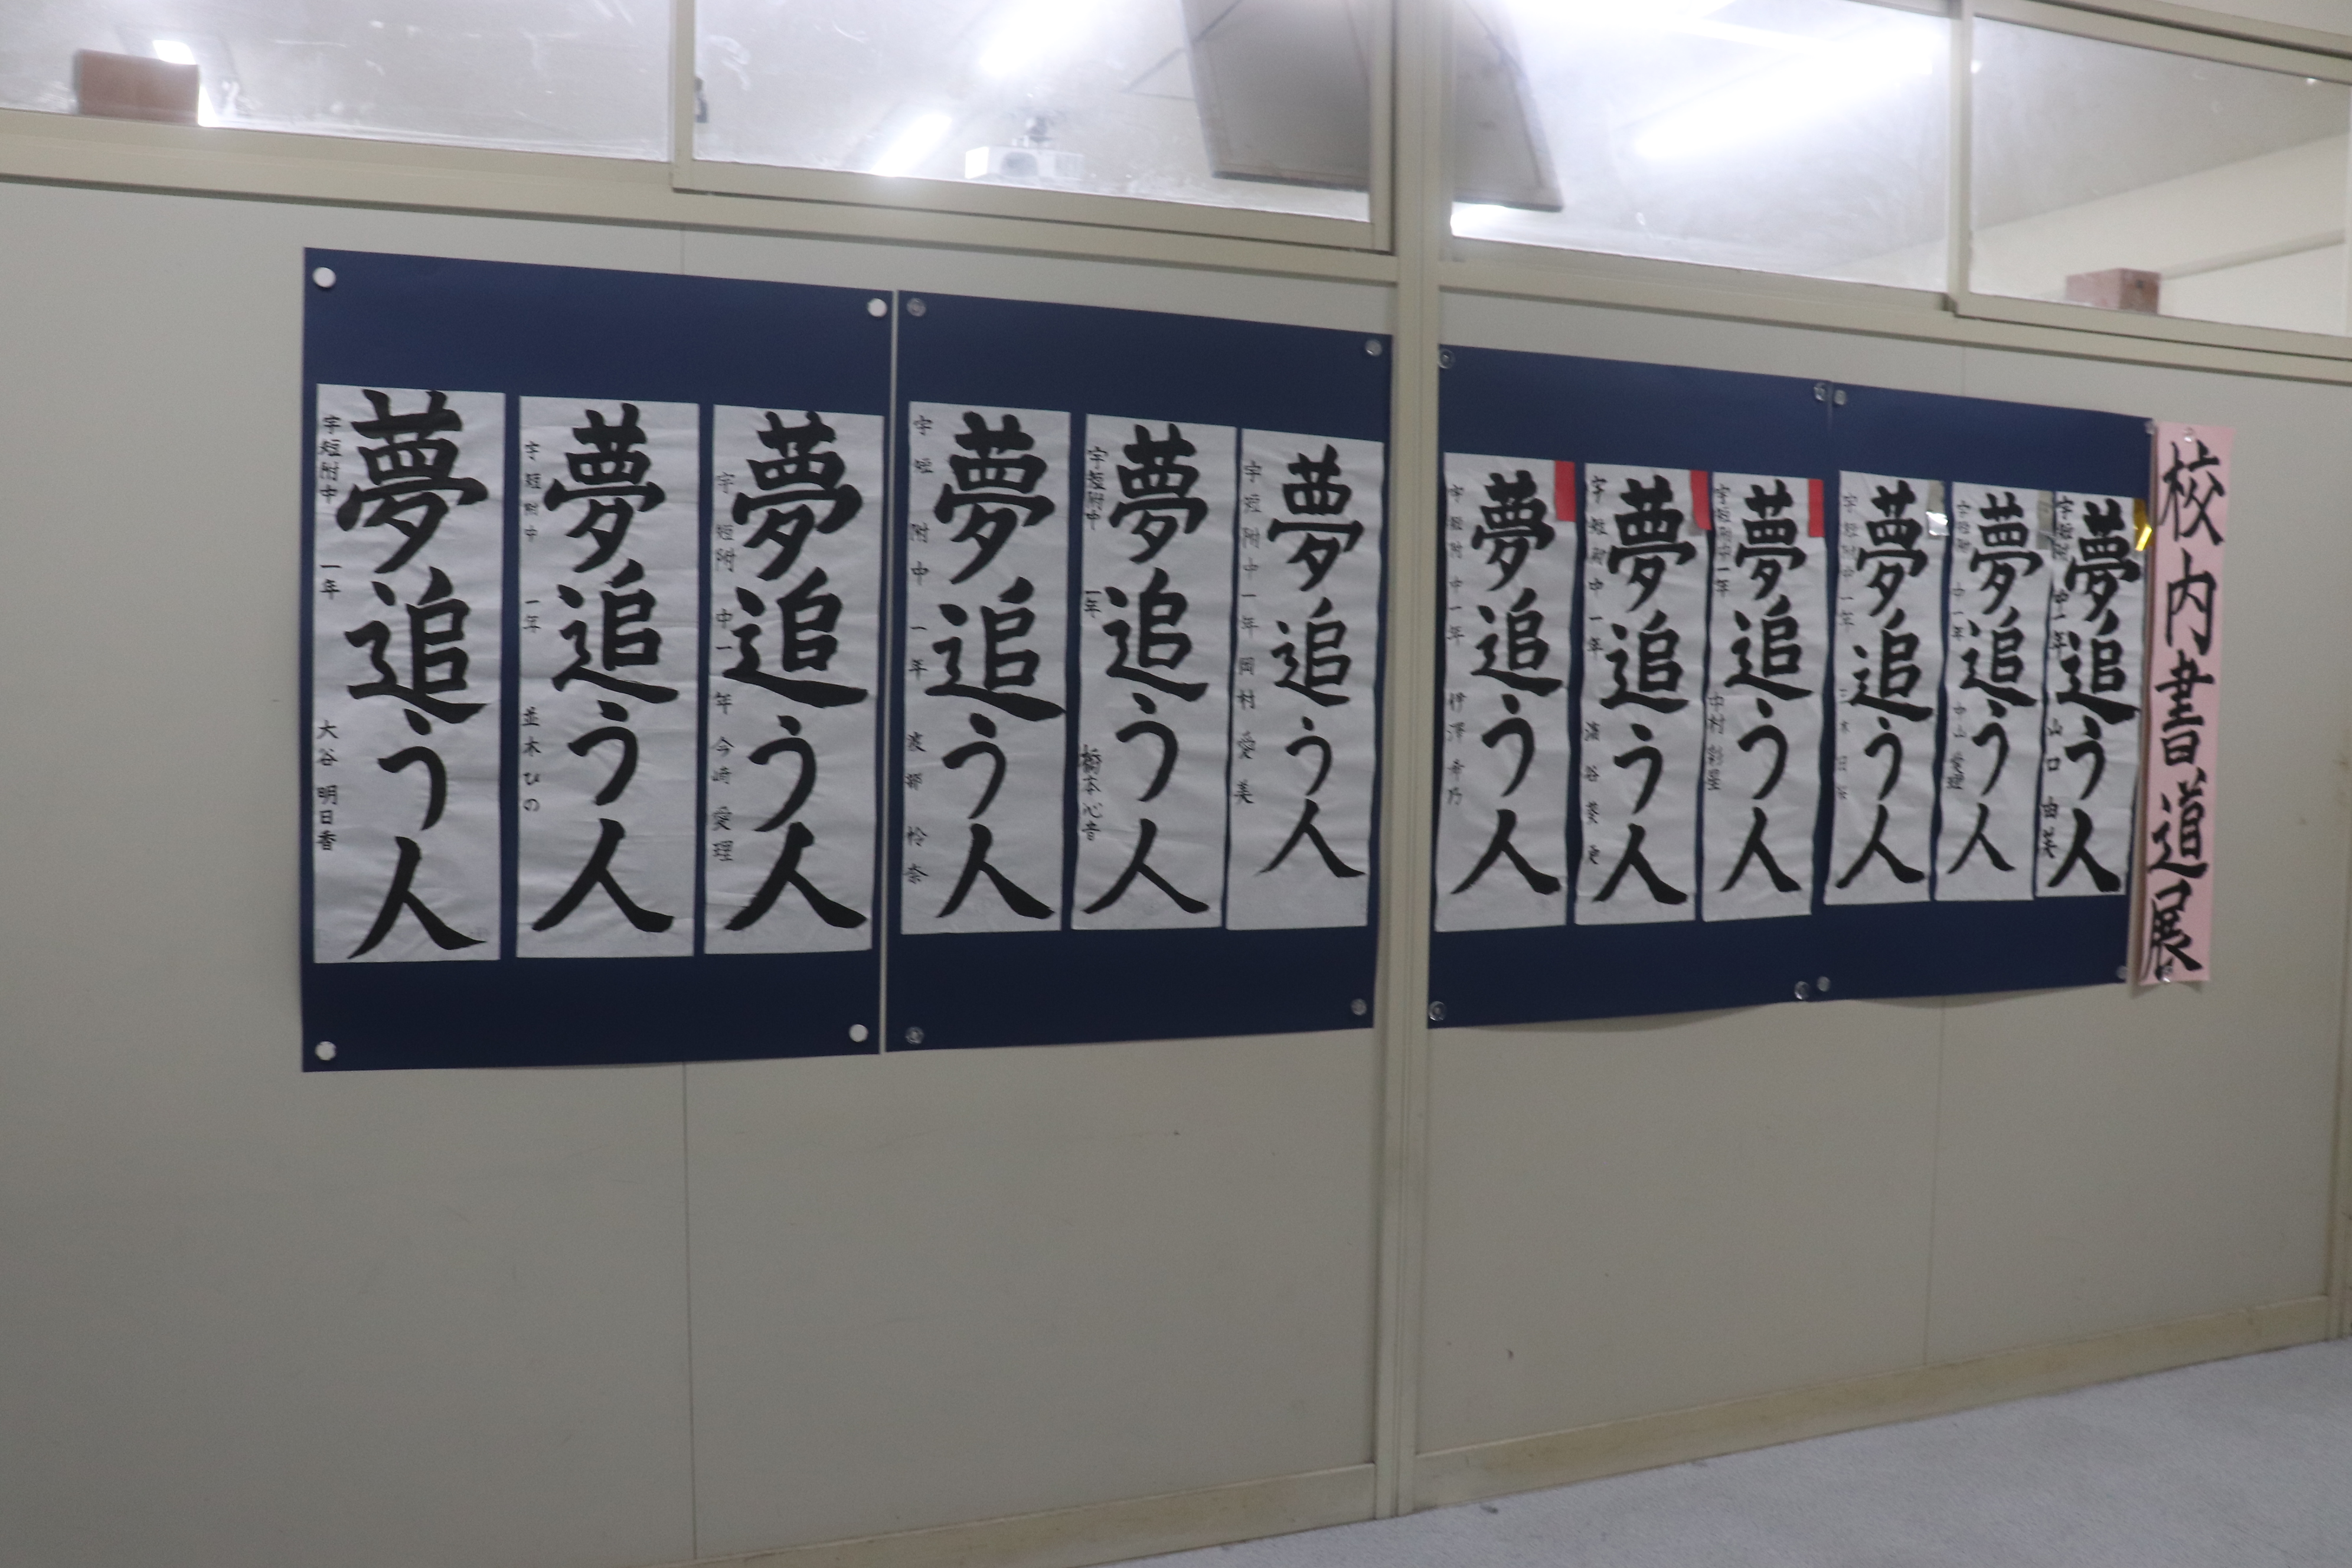 校内書道展
夢追う人
宇短附中一年 山口由芙
夢追う人
宇短附中一年 中山愛理
夢追う人
宇短附中一年 三木
夢追う人
宇短附中一年 中村彩星
夢追う人
宇短附中一年 濱谷葵
夢追う人
宇短附中一年 伊澤希乃
夢追う人
宇短附中一年 岡村愛美
夢追う人
宇短附中 一年 橋本心音
夢追う人
宇短附中一年 渡部怜奈
夢追う人
宇短附中一年 今崎愛理
夢追う人
宇短附中 一年 並木ひの
夢追う人
宇短附中 一年 大谷 明日香